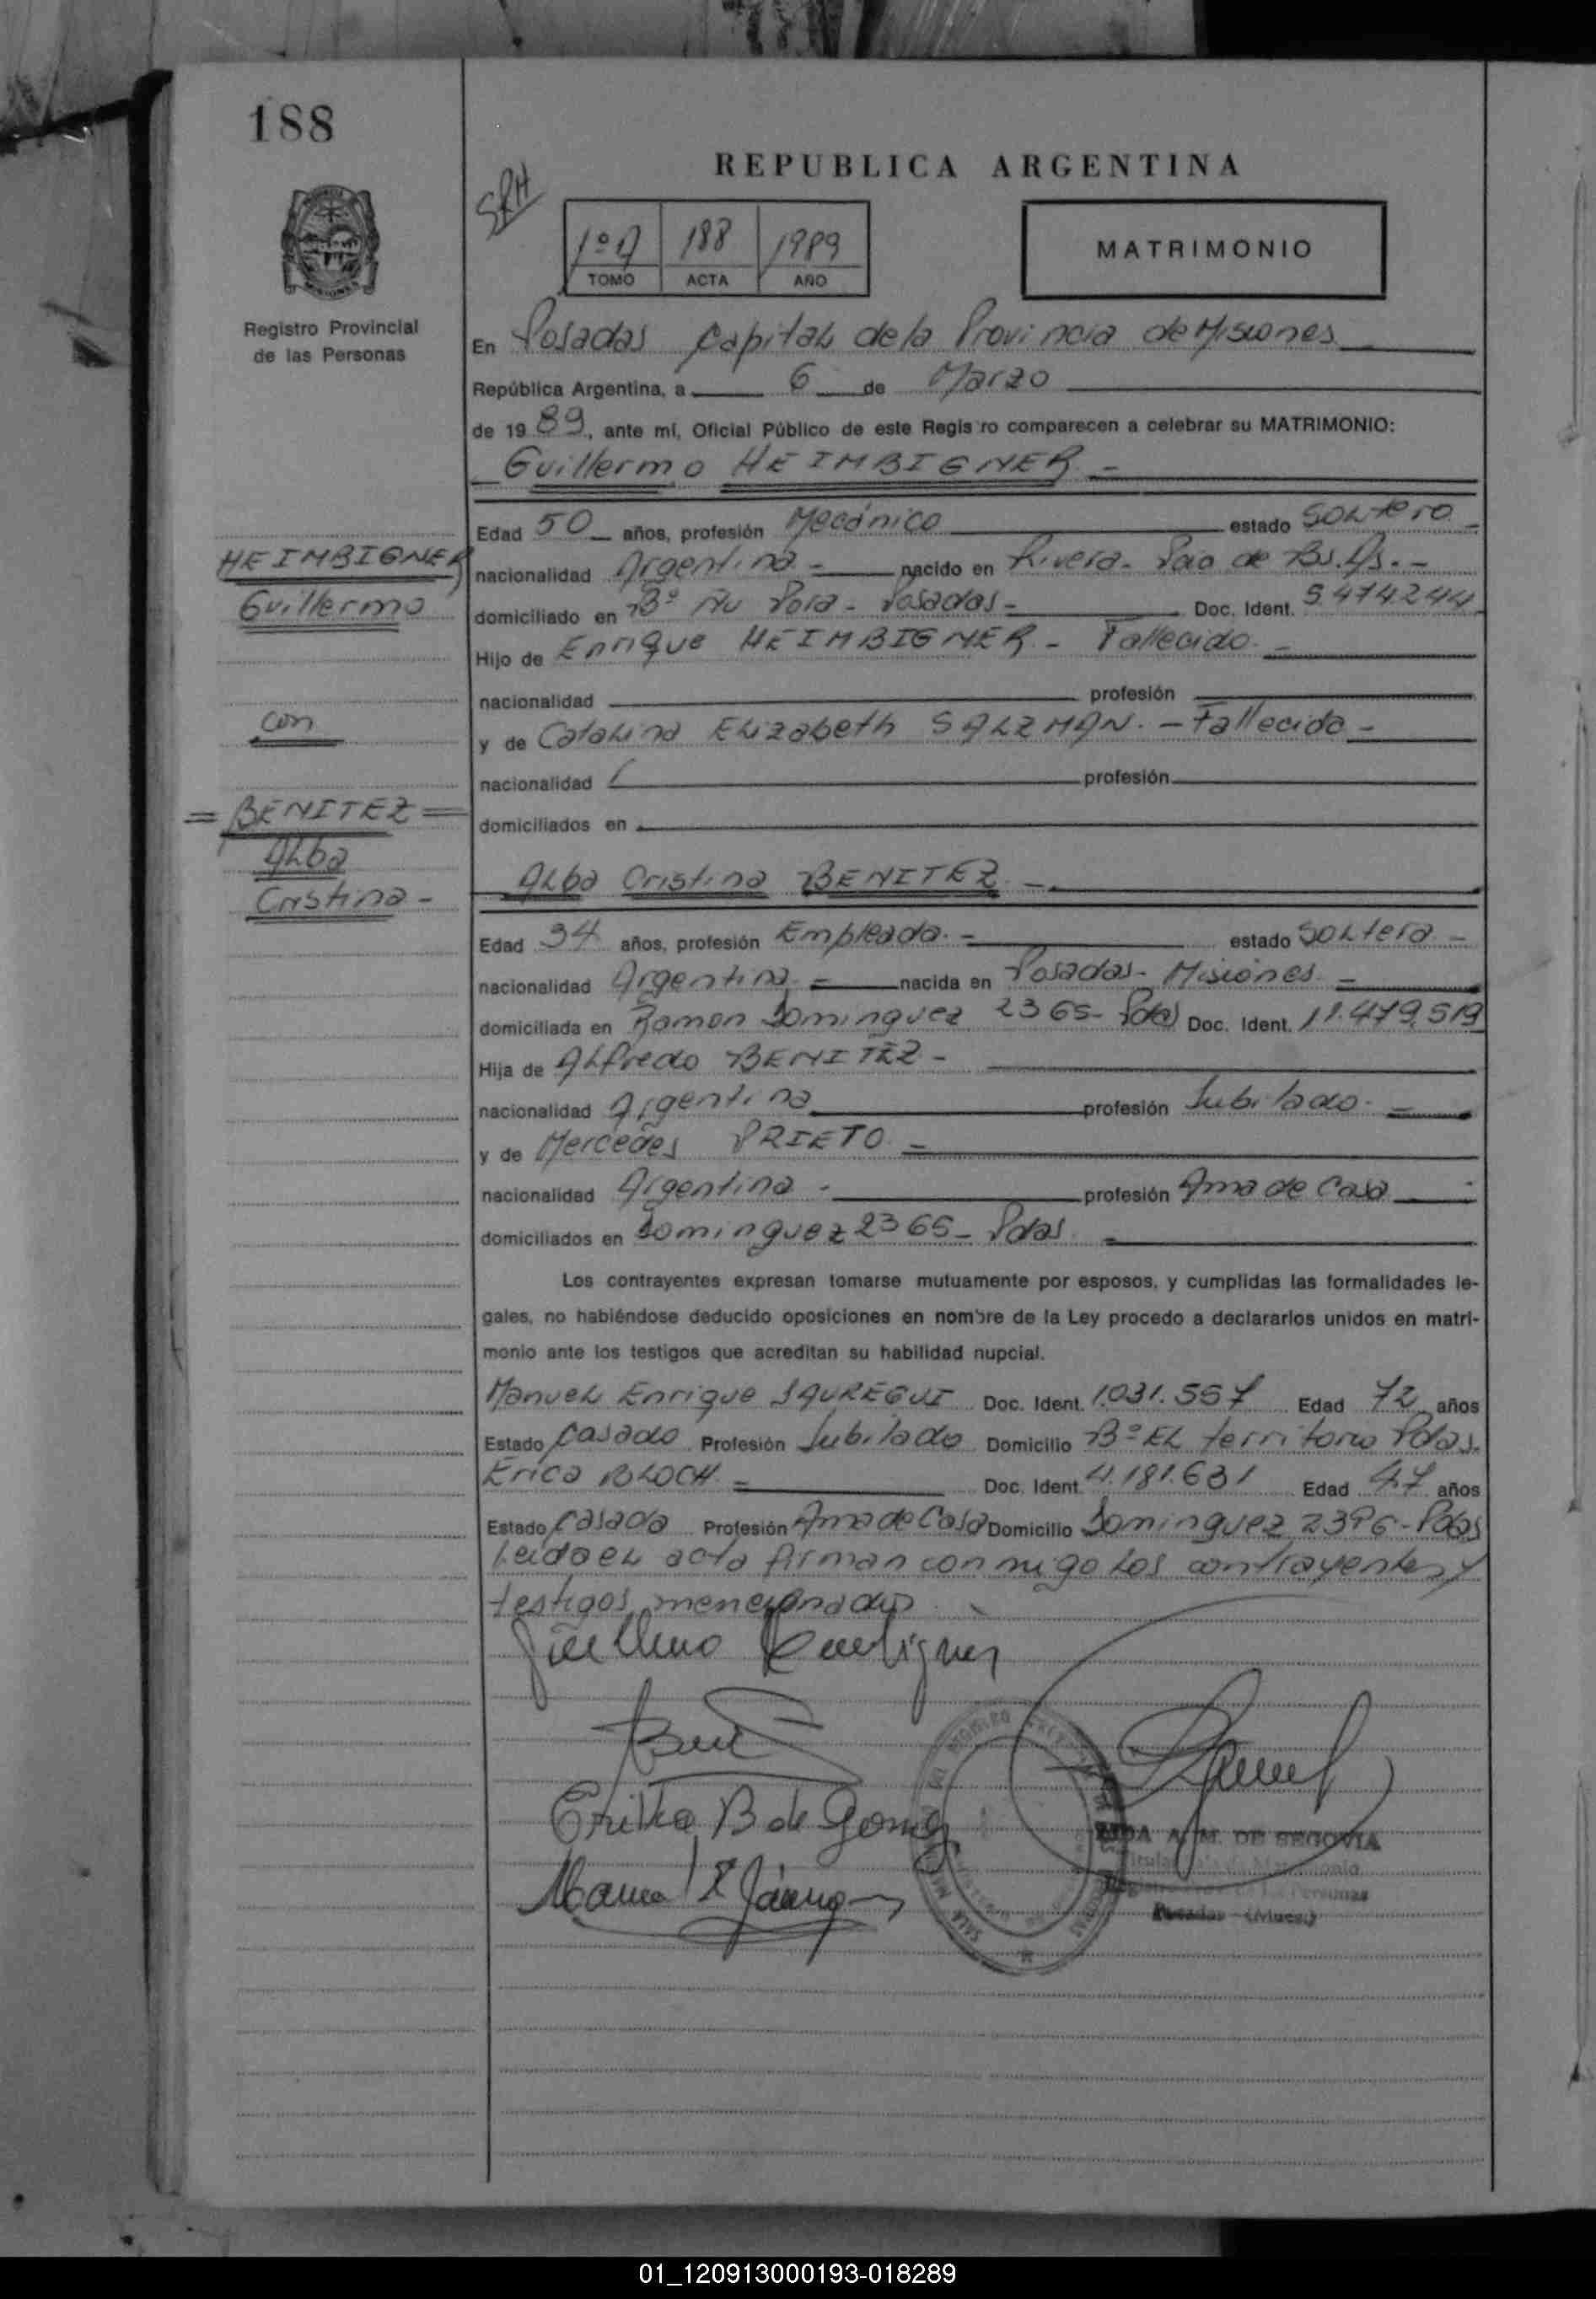 188
REPUBLICA ARGENTINA
SRH
1º A 188 1989
TOMO ACTA AÑO
MATRIMONIO
Registro Provincial
de las Personas
En Posadas Capital de la Provincia de Misiones
República Argentina, a 6 de Marzo
de 1989, ante mí, Oficial Público de este Registro comparecen a celebrar su MATRIMONIO:
Guillermo HEIMBIGNER -
Edad 50 años, profesión Mecánico estado Soltero -
HEIMBIGNER
nacionalidad Argentina - nacido en Rivera - Pcia de Bs. As. -
Guillermo
domiciliado en Bº Ñu Porá - Posadas - Doc. Ident. 5.474.244
Hijo de Enrique HEIMBIGNER - Fallecido -
nacionalidad profesión
con
y de Catalina Elizabeth SALZMAN. - Fallecida -
nacionalidad profesión
= BENITEZ =
domiciliados en
Alba
Cristina -
Alba Cristina BENITEZ -
Edad 34 años, profesión Empleada - estado Soltera -
nacionalidad Argentina - nacida en Posadas - Misiones -
domiciliada en Ramon Dominguez 2365 - Pdas Doc. Ident. 11.479.519
Hija de Alfredo BENITEZ -
nacionalidad Argentina profesión Jubilado -
y de Mercedes PRIETO -
nacionalidad Argentina - profesión Ama de Casa
domiciliados en Dominguez 2365 - Pdas -
Los contrayentes expresan tomarse mutuamente por esposos, y cumplidas las formalidades le-
gales, no habiéndose deducido oposiciones en nombre de la Ley procedo a declararlos unidos en matri-
monio ante los testigos que acreditan su habilidad nupcial.
Manuel Enrique JAUREGUI Doc. Ident. 1.031.557 Edad 72 años
Estado Casado Profesión Jubilado Domicilio Bº El territorio Pdas.
Erica BLOCH - Doc. Ident. 4.181.631 Edad 47 años
Estado Casada Profesión Ama de Casa Domicilio Dominguez 2396 - Pdas
Leida el acta firman conmigo los contrayentes y
testigos mencionados
Guillermo Heimbigner
Erika B de Gomez
A. M. DE SEGOVIA
Posadas (Mnes.)
01_120913000193-018289